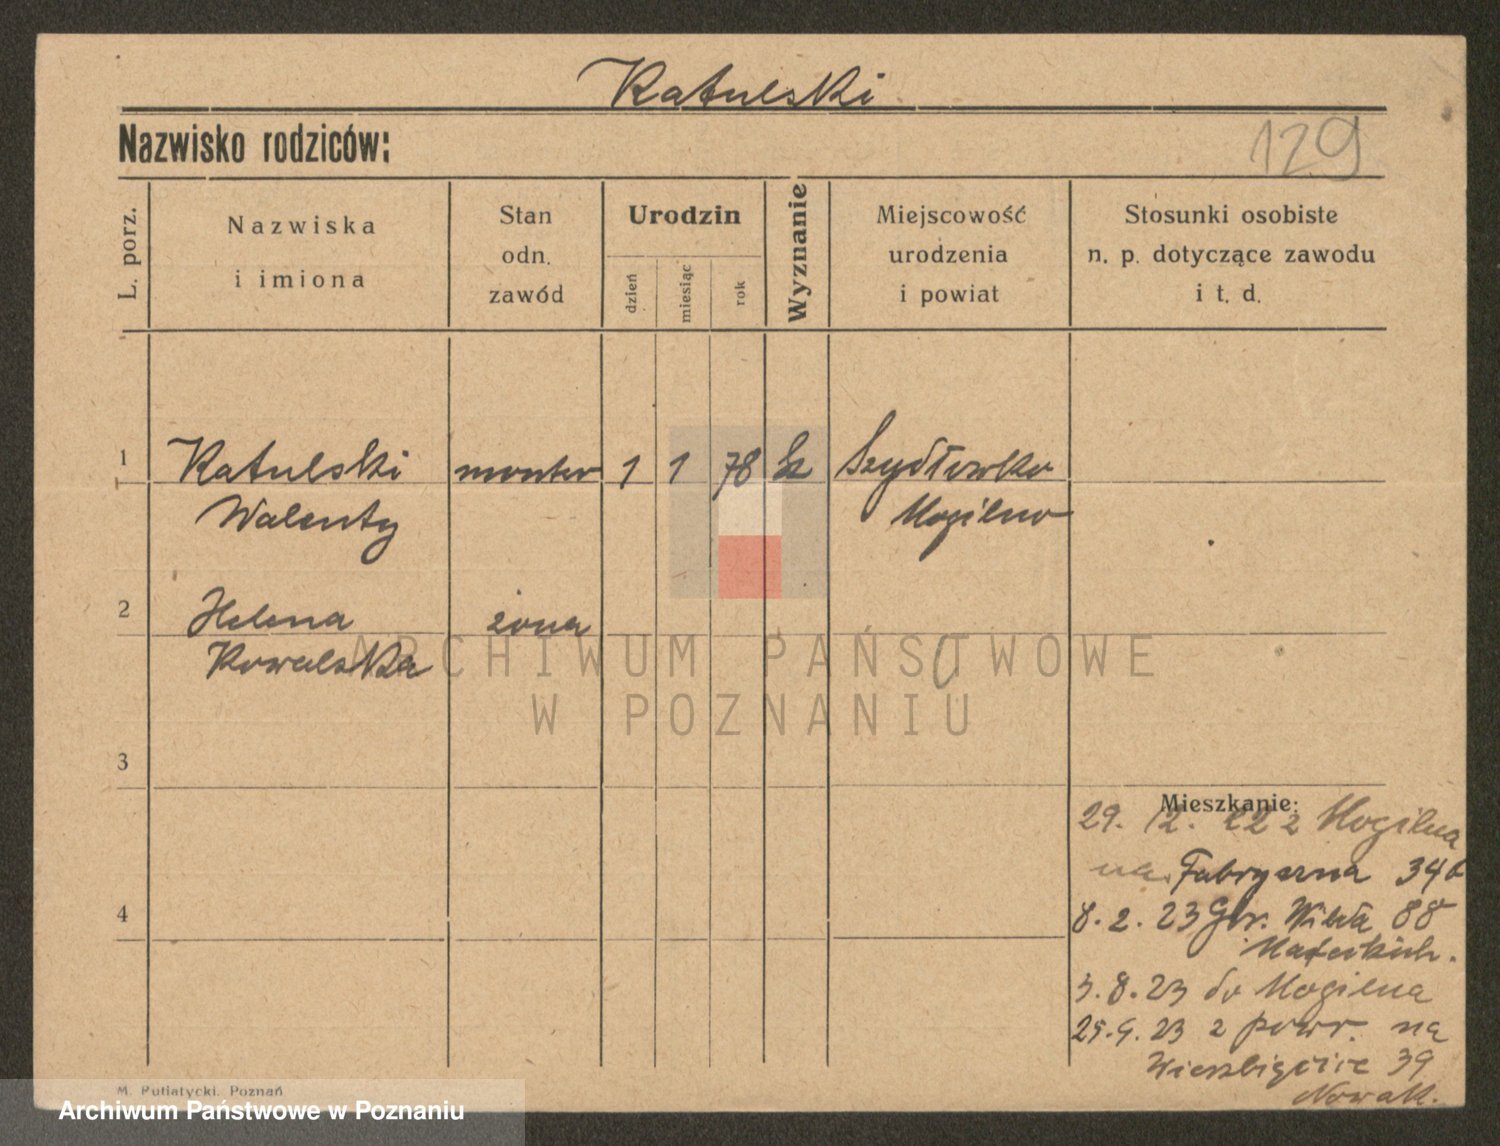 Katulski
Nazwisko rodziców:
129
L. porz.
Nazwiska
i imiona
Stan
odn.
zawód
Urodzin
dzień
miesiąc
rok
Wyznanie
Miejscowość
urodzenia
i powiat
Stosunki osobiste
n. p. dotyczące zawodu
i t. d.
1 Katulski monter 1 1 78 Szydłówko
Walenty Mogilno
2 Helena żona
Kowalska
ARCHIWUM PAŃSTWOWE
W POZNANIU
3
Mieszkanie:
29. 12. 22 z Mogilna
na Fabryczna 34
4
8. 2. 23 Gór. Wilda 88
3. 8. 23 do Mogilna
25. 9. 23 z powr. na
Wierzbięcice 39
Nowak.
M. Putiatycki, Poznań
Archiwum Państwowe w Poznaniu